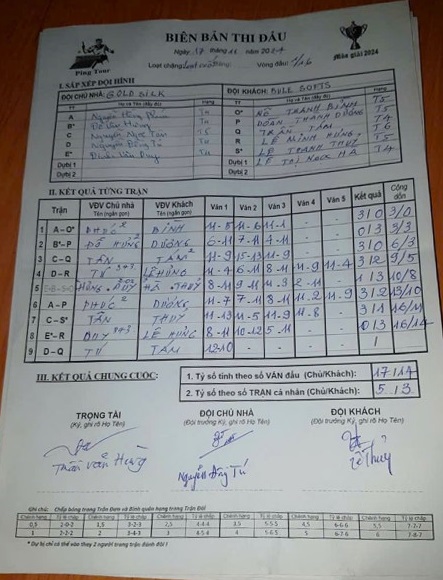 BIÊN BẢN THI ĐẤU
Ping Tour
Mùa giải 2024
Ngày 17 tháng 11 năm 2024
Lượt chặng: Vòng đấu: 1/16
I. SẮP XẾP ĐỘI HÌNH
ĐỘI CHỦ NHÀ: GOLD SILK
ĐỘI KHÁCH: BULL SOFTS
TT Họ và Tên (đầy đủ) Hạng
TT Họ và Tên (đầy đủ) Hạng
A Nguyễn Hồng T4
O* THANH BÌNH T5
B* Đỗ Văn Hùng T4
P DOÃN THANH DƯƠNG T4
C Nguyễn Ngọc T5
Q TRẦN TÂM T6
D Nguyễn Đăng Tú T4
R LÊ MINH HÙNG T5
E* Duy T4
S* LÊ THANH THUỶ T5
Dự bị 1
Dự bị 1 LÊ THỊ NGỌC HÀ T4
Dự bị 2
Dự bị 2
II. KẾT QUẢ TỪNG TRẬN
Trận VĐV Chủ nhà VĐV Khách Ván 1 Ván 2 Ván 3 Ván 4 Ván 5 Kết quả Cộng dồn
Tên (ngắn gọn) Tên (ngắn gọn)
1 A – O* PHÚC BÌNH 11-5 11-6 11-1 - - 3 / 0 3/0
2 B* – P ĐỖ HÙNG DƯƠNG 6-11 7-11 4-11 - - 0 / 3 3/3
3 C – Q TÂN TÂM 11-9 15-13 11-9 - - 3 / 0 6/3
4 D – R TÚ LÊ HÙNG 11-4 6-11 8-11 11-9 11-4 3 / 2 9/5
5 HÙNG. DUY HÀ. THUỶ 8-11 9-11 11-3 2-11 - 1 / 3 10/8
6 A – P PHÚC DƯƠNG 11-7 7-11 8-11 11-2 11-9 3 / 2 13/10
7 C – S* TÂN THUỶ 11-13 11-5 11-9 11-8 - 3 / 1 16/11
8 E* – R DUY LÊ HÙNG 8-11 10-12 5-11 - - 0 / 3 16/14
9 D – Q TÚ TÂM 12-10 - - - - 1
III. KẾT QUẢ CHUNG CUỘC:
1. Tỷ số tính theo số VÁN đấu (Chủ/Khách): 17 / 14
2. Tỷ số theo số TRẬN cá nhân (Chủ/Khách): 5 / 3
TRỌNG TÀI ĐỘI CHỦ NHÀ ĐỘI KHÁCH
(Ký, ghi rõ Họ Tên) (Đội trưởng Ký, ghi rõ Họ Tên) (Đội trưởng Ký, ghi rõ Họ Tên)
Trần Văn Hùng Nguyễn Đăng Tú Lê Thuỷ
Ghi chú: Chấp bóng trong Trận Đơn và Bình quân hạng trong Trận Đôi
Chênh hạng Tỷ lệ chấp Chênh hạng Tỷ lệ chấp Chênh hạng Tỷ lệ chấp Chênh hạng Tỷ lệ chấp Chênh hạng Tỷ lệ chấp Chênh hạng Tỷ lệ chấp
0,5 2-0-2 1,5 3-2-3 2,5 4-4-4 3,5 5-5-5 4,5 6-6-6 5,5 7-7-7
1 2-2-2 2 3-4-3 3 4-5-4 4 5-6-5 5 6-7-6 6 7-8-7
* Dự bị chỉ có thể thay thế 2 người trong trận đánh đôi !